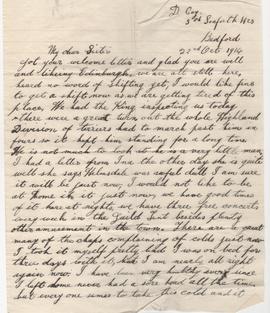 D Coy
5th Seaforth Hrs
Bedford
22nd Oct 1914
My dear Sister
Got your welcome letter and glad you are well
and liking Edinburgh, we are all still here,
heard no word of shifting yet, I would like fine
to get a shift now as we are getting tired of this
place, We had the King inspecting us today
there were a great turn out the whole Highland
Division of terriers had to march past him in
fours so it kept him standing for a long time.
He is not much to look at he is a very little man,
I had a letter from Ina the other day she is quite
well she says Helmsdale was awful dull I am sure
it will be just now, I would not like to be
at home in it just now, we have good times
of it here at night, we have three free concerts
every week in the Guild Tent besides plenty
other amusement in the town. There are a great
many of the chaps complaining of colds just now
I took it myself pretty bad I was in bed for
three days with it, but I am nearly all right
again now. I have been very healthy ever since
I left home never had a sore head all the time,
but every one seems to take this cold and it